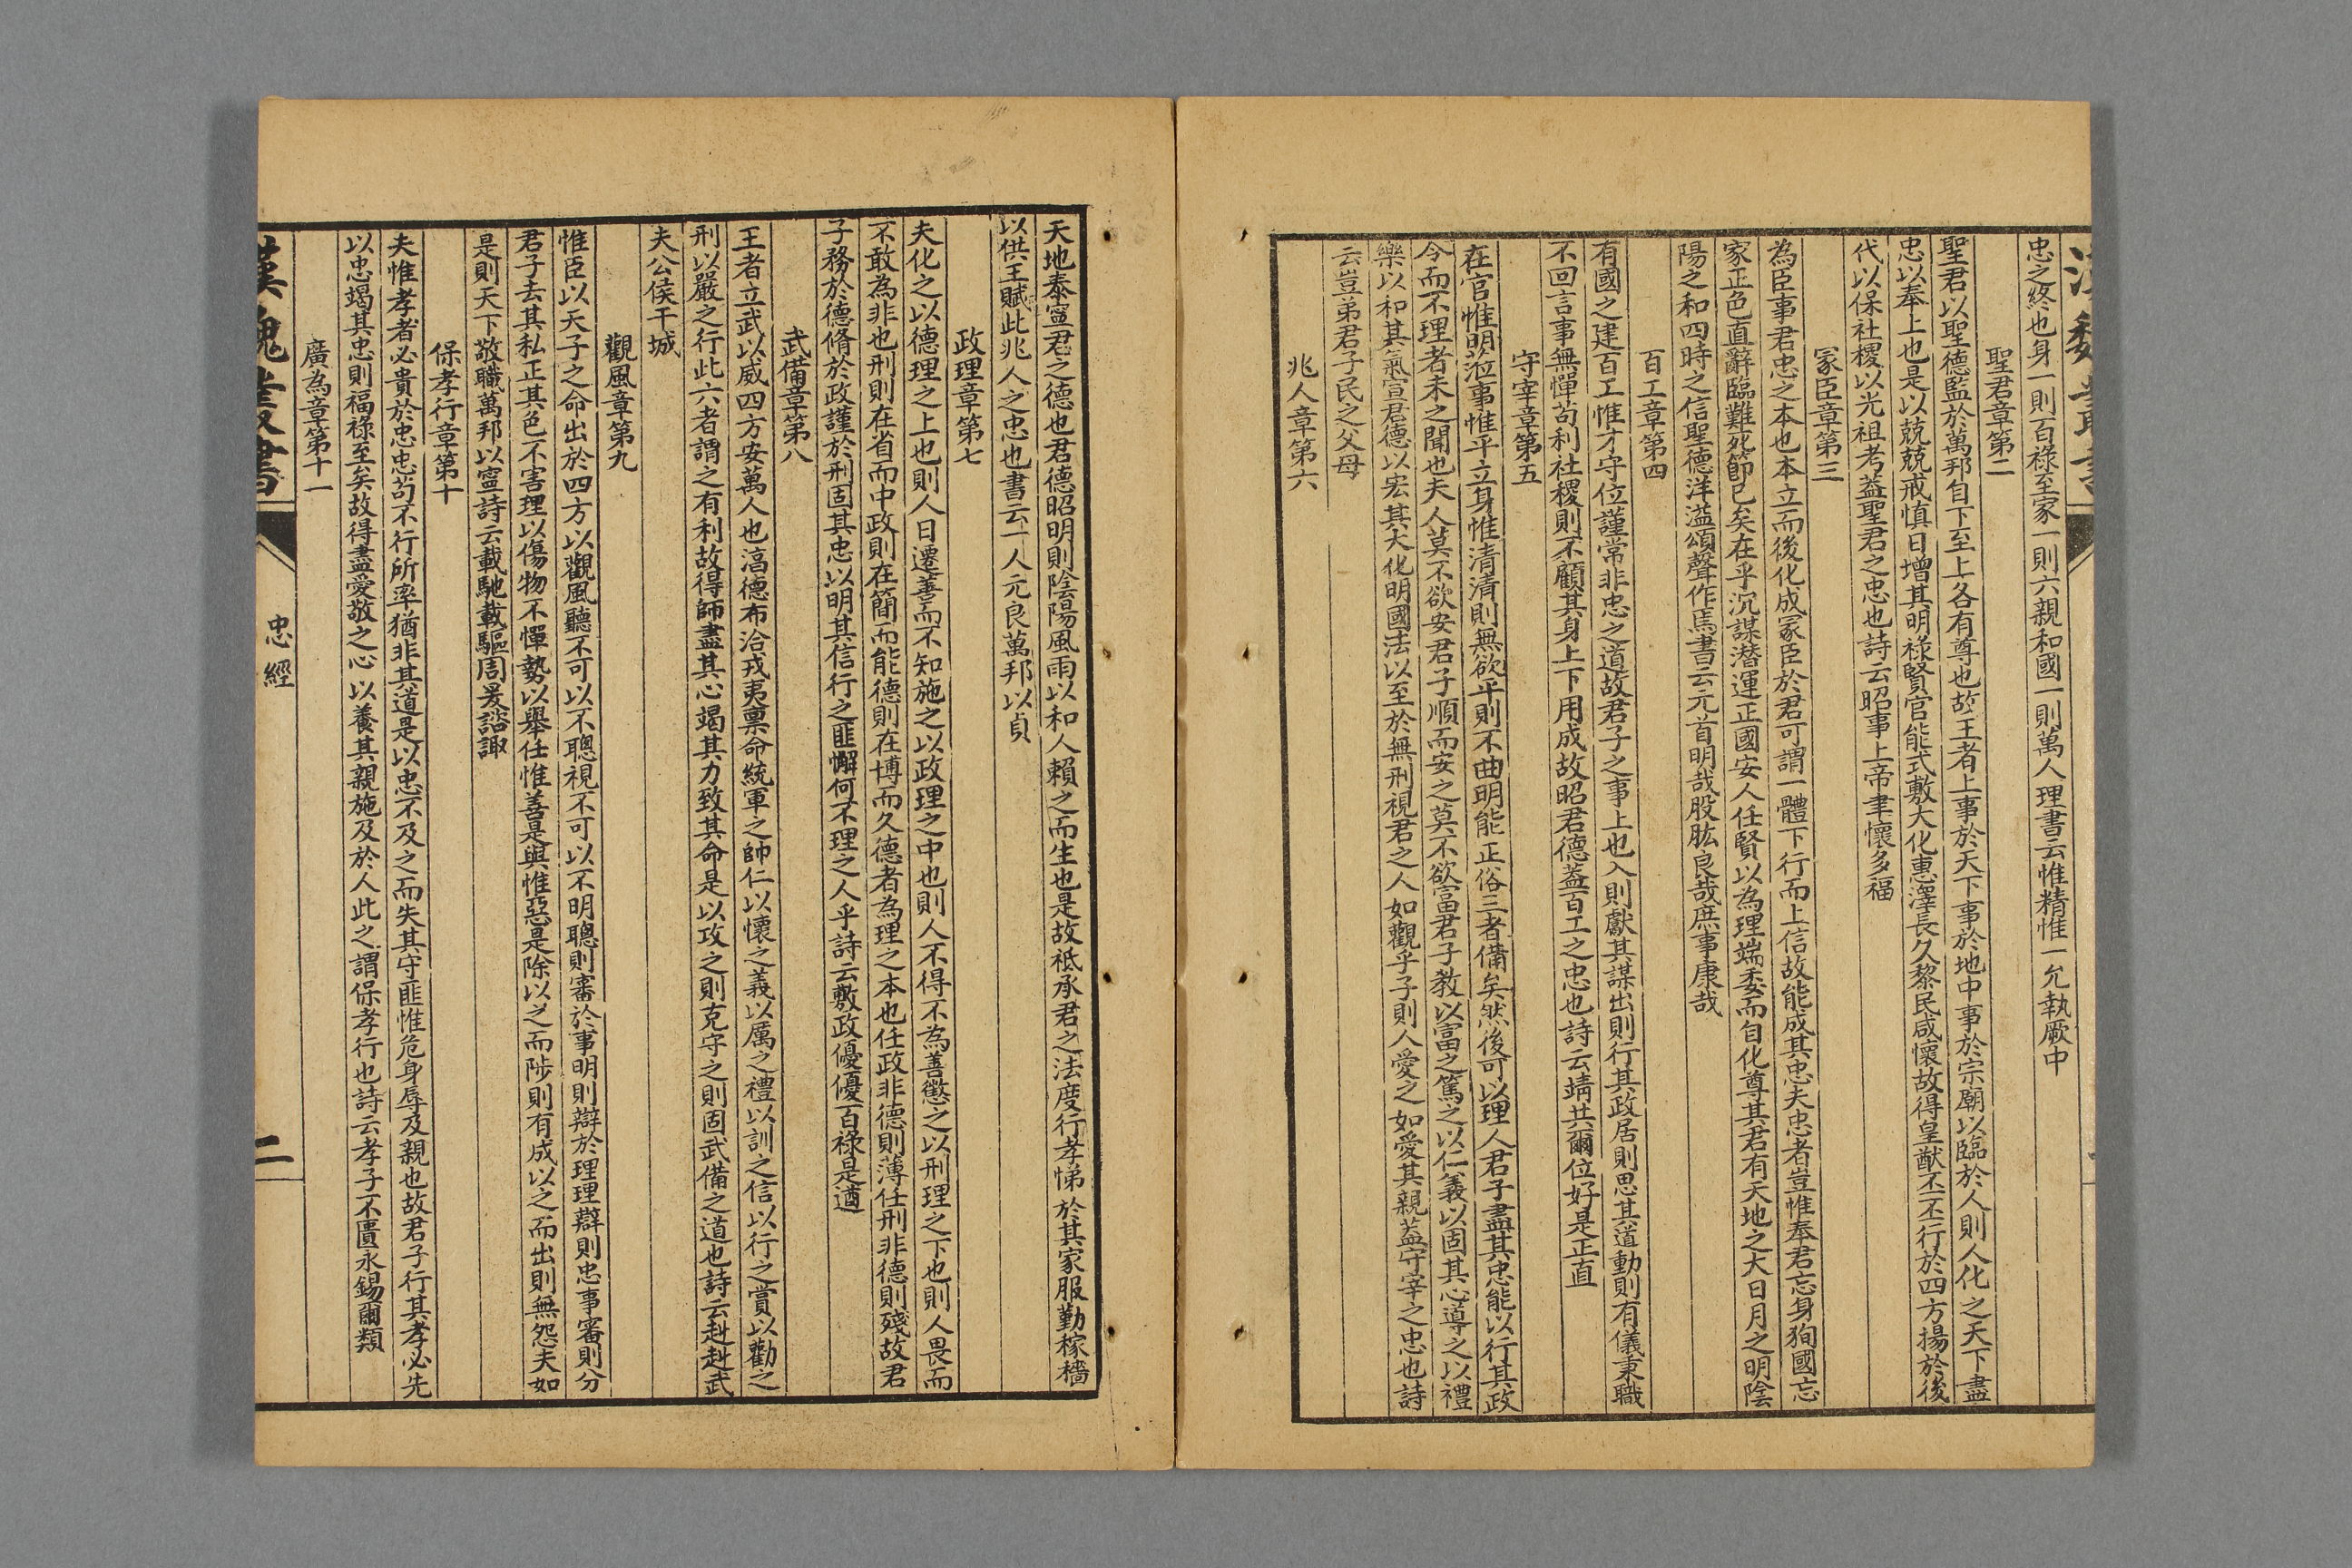 忠之終也身一則百祿至家一則六親和國一則萬人理書云惟精惟一允執厥中
聖君章第二
聖君以聖德監於萬邦自下至上各有尊也故王者上事於天下事於地中事於宗廟以臨於人則人化之天下盡
忠以奉上也是以兢兢戒慎日增其明祿賢官能式敷大化惠澤長久黎民咸懷故得皇猷丕丕行於四方揚於後
代以保社稷以光祖考蓋聖君之忠也詩云昭事上帝聿懷多福
冡臣章第三
為臣事君忠之本也本立而後化成冡臣於君可謂一體下行而上信故能成其忠夫忠者豈惟奉君忘身狥國忘
家正色直辭臨難死節已矣在乎沉謀潛運正國安人任賢以為理端委而自化尊其君有天地之大日月之明陰
陽之和四時之信聖德洋溢頌聲作焉書云元首明哉股肱良哉庶事康哉
百工章第四
有國之建百工惟才守位謹常非忠之道故君子之事上也入則獻其謀出則行其政居則思其道動則有儀秉職
不回言事無憚苟利社稷則不顧其身上下用成故昭君德蓋百工之忠也詩云靖共爾位好是正直
守宰章第五
在官惟明蒞事惟平立身惟清清則無欲平則不曲明能正俗三者備矣然後可以理人君子盡其忠能以行其政
令而不理者未之聞也夫人莫不欲安君子順而安之莫不欲富君子教以富之篤之以仁義以固其心導之以禮
樂以和其氣宣君德以宏其大化明國法以至於無刑視君之人如觀乎子則人愛之如愛其親蓋守宰之忠也詩
云豈弟君子民之父母
兆人章第六
天地泰寧君之德也君德昭明則陰陽風雨以和人賴之而生也是故祗承君之法度行孝悌於其家服勤稼穡
以供王賦此兆人之忠也書云一人元良萬邦以貞
政理章第七
夫化之以德理之上也則人日遷善而不知施之以政理之中也則人不得不為善懲之以刑理之下也則人畏而
不敢為非也刑則在省而中政則在簡而能德則在博而久德者為理之本也任政非德則薄任刑非德則殘故君
子務於德脩於政謹於刑固其忠以明其信行之匪懈何不理之人乎詩云敷政優優百祿是遒
武備章第八
王者立武以威四方安萬人也滈德布洽戎夷禀命統軍之帥仁以懷之義以厲之禮以訓之信以行之賞以勸之
刑以嚴之行此六者謂之有利故得師盡其心竭其力致其命是以攻之則克守之則固武備之道也詩云赳赳武
夫公侯干城
觀風章第九
惟臣以天子之命出於四方以觀風聽不可以不聰視不可以不明聰則審於事明則辯於理理辯則忠事審則分
君子去其私正其色不害理以傷物不憚勢以舉任惟善是與惟惡是除以之而陟則有成以之而出則無怨夫如
是則天下敬職萬邦以寧詩云載馳載驅周爰諮諏
保孝行章第十
夫惟孝者必貴於忠忠苟不行所率猶非其道是以忠不及之而失其守匪惟危身辱及親也故君子行其孝必先
以忠竭其忠則福祿至矣故得盡愛敬之心以養其親施及於人此之謂保孝行也詩云孝子不匱永錫爾類
廣為章第十一
漢魏叢書
忠經
二